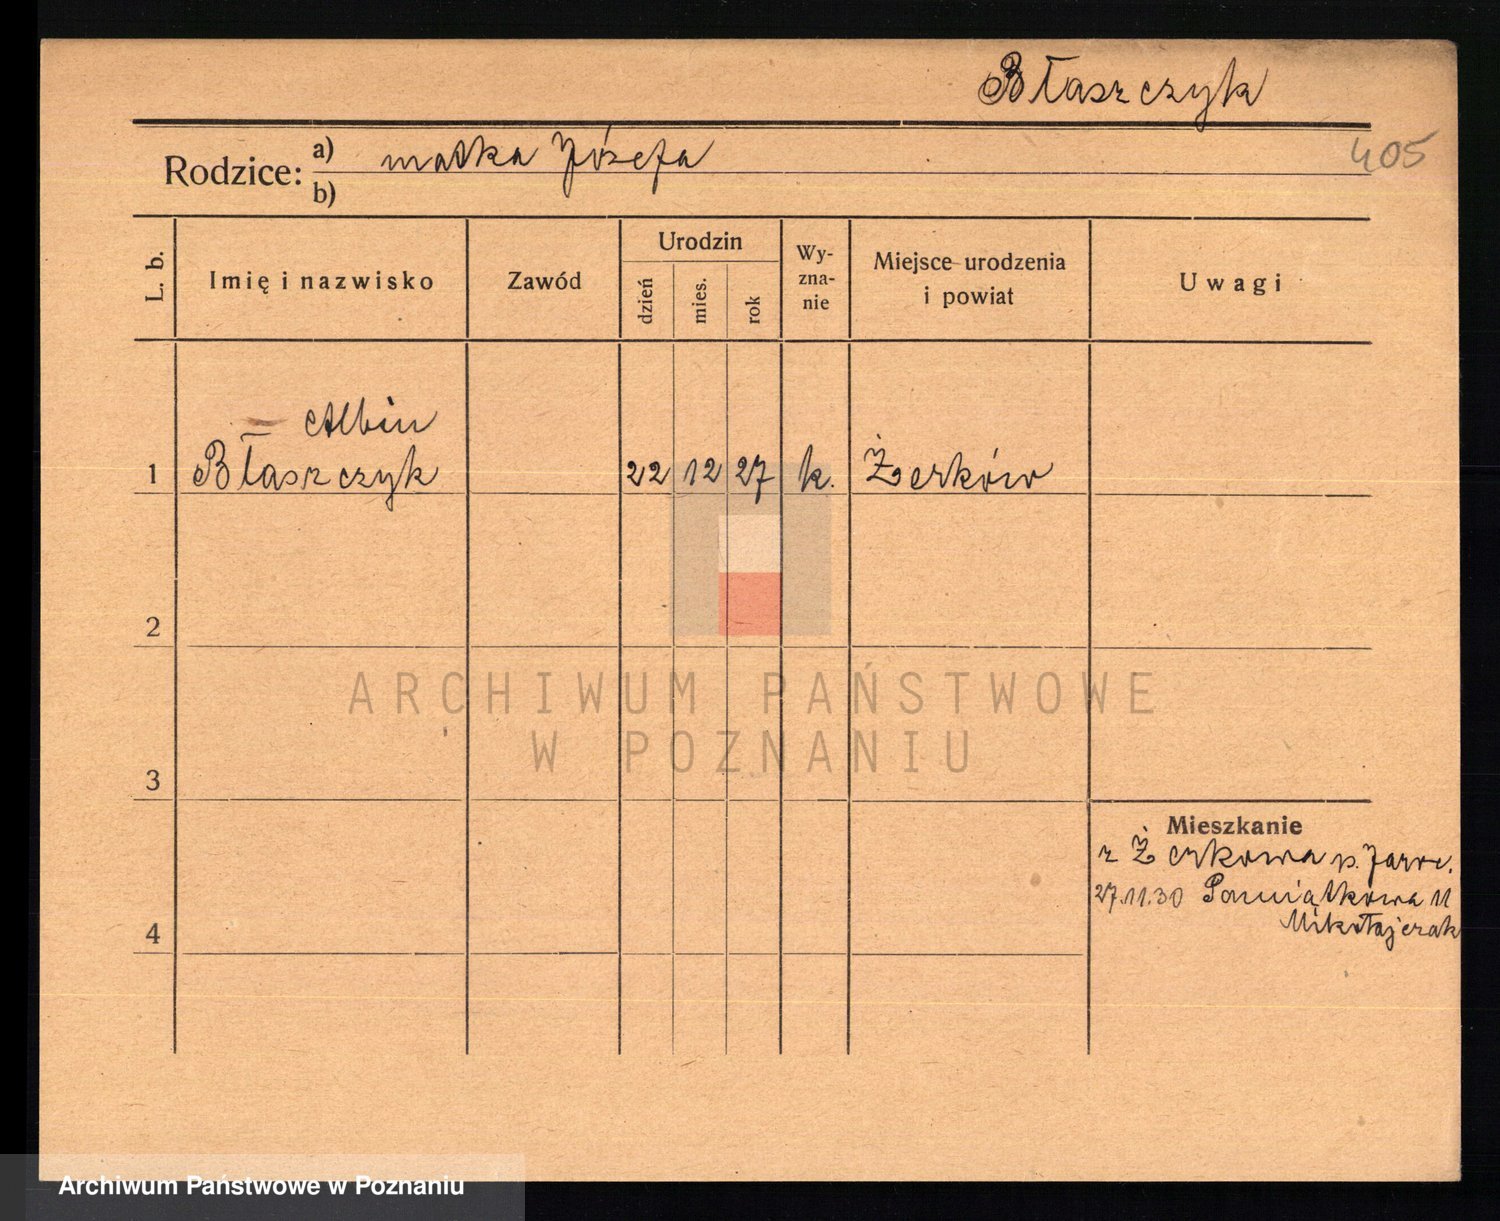 Błaszczyk
405
Rodzice: a) matka Józefa
b)
L. b.
Imię i nazwisko
Zawód
Urodzin
dzień
mies.
rok
Wy-
zna-
nie
Miejsce urodzenia
i powiat
Uwagi
Albin
1 Błaszczyk 22 12 27 k. Żerków
2
ARCHIWUM PAŃSTWOWE
W POZNANIU
3
Mieszkanie
z Żerkowa p. Jaroc.
27.11.30 Pamiątkowa 11
Mikołajczak
4
Archiwum Państwowe w Poznaniu